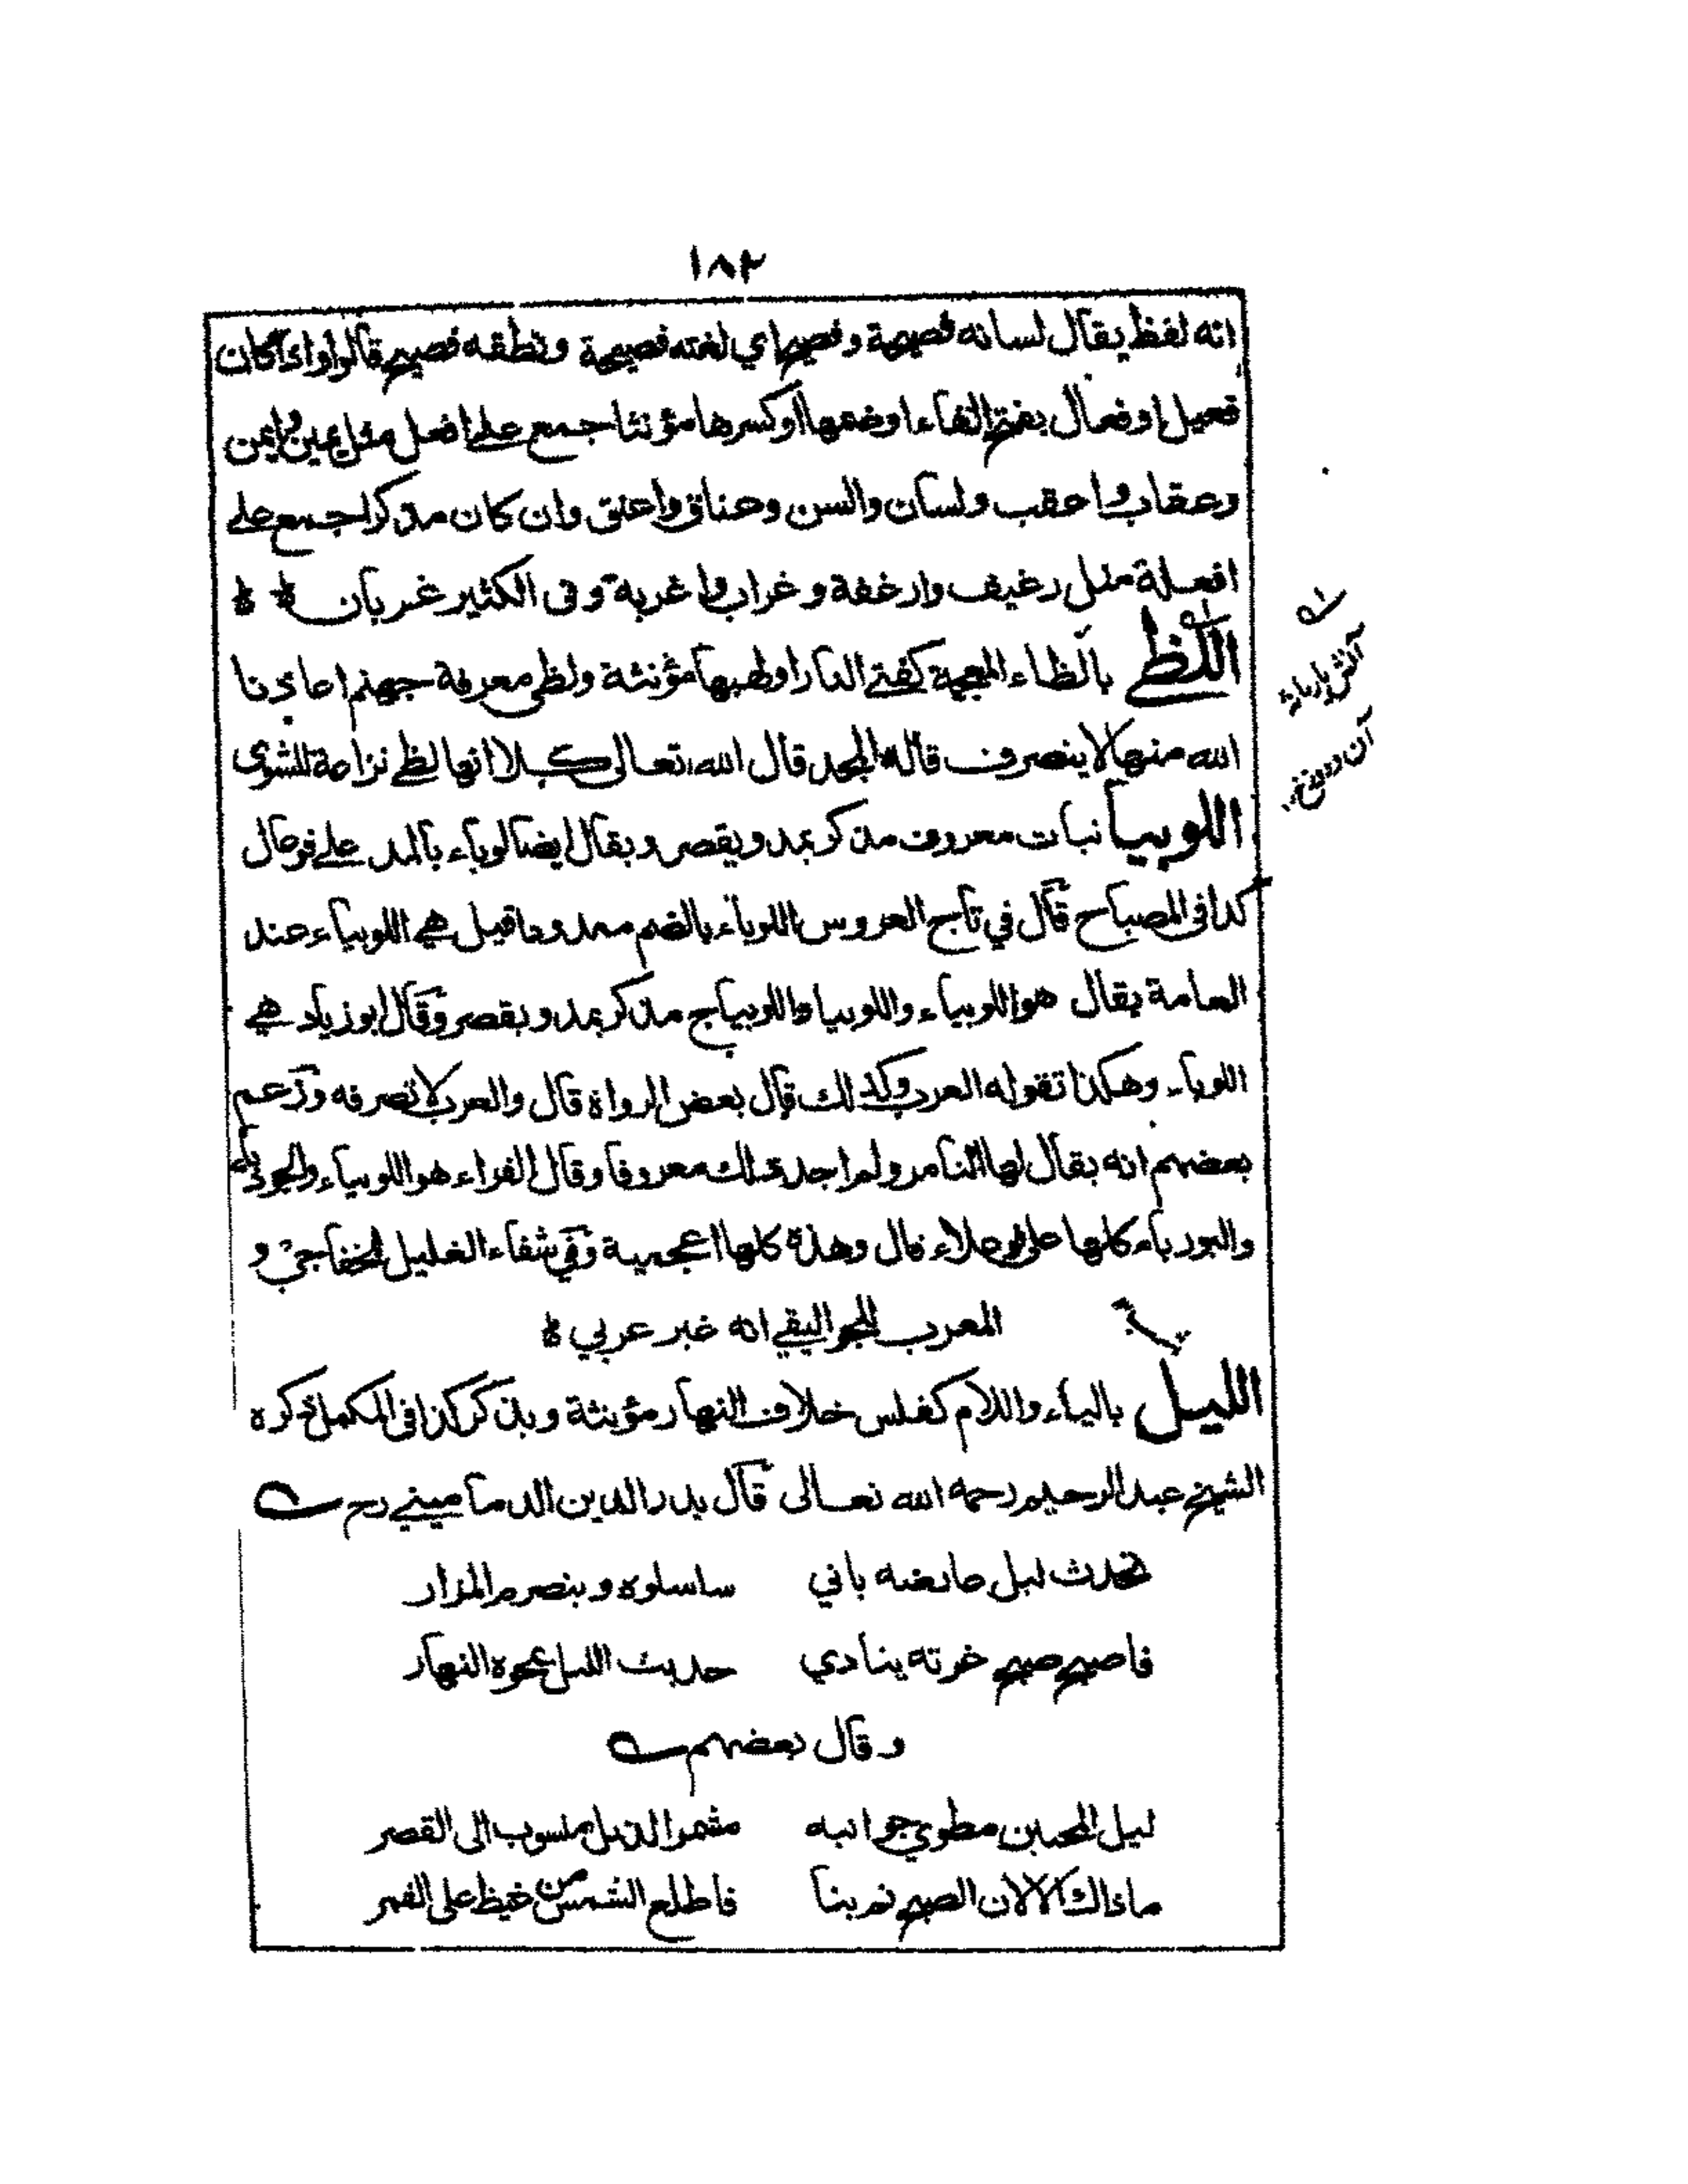 ١٨٢
انه لفظ يقال لسانه فصيحة وفصيح اي لغته فصيحة ونطقه فصيح قالوا واذا كان
فعيل او فعال بفتح الفاء او ضمها او كسرها مؤنثا جمع على افعل مثل يمين وايمن
وعقاب واعقب ولسان والسن وعناق واعنق وان كان مذكرا جمع على
افعلة مثل رغيف وارغفة وغراب واغربة وفى الكثير غربان
اللظى بالظاء المعجمة كفتى النار او لهبها مؤنثة ولظى معرفة جهنم اعاذنا
الله منها لا ينصرف قاله المجد قال الله تعالى كلا انها لظى نزاعة للشوى
اللوبيا نبات معروف مذكر يمد ويقصر ويقال ايضا لوباء بالمد على فوعال
كذا فى المصباح قال في تاج العروس اللوباء بالضم ممدودا قيل هي اللوبياء عند
العامة يقال هو اللوبياء واللوبيا واللوبياج مذكر يمد ويقصر وقال ابو زياد هي
اللوباء وهكذا تقوله العرب وكذلك قال بعض الرواة قال والعرب لا تصرفه وزعم
بعضهم انه يقال لها الثامر ولم اجد ذلك معروفا وقال الفراء هو اللوبياء والجودياء
والبورياء كلها على فوعلاء قال وهذه كلها اعجمية وفي شفاء الغليل للخفاجي و
المعرب للجواليقي انه غير عربي
الليل بالياء واللام كفلس خلاف النهار مؤنثة ويذكر كذا فى المكمل ذكره
الشيخ عبد الرحيم رحمه الله تعالى قال بدر الدين الدماميني رح
تحدث ليل عارضه باني ساسلوه وينصرم المزار
فاصبح صبح غرته ينادي حديث الليل يمحوه النهار
وقال بعضهم
ليل المحبين مطوي جوانبه مشمر الذيل منسوب الى القصر
ماذاك الا لان الصبح نم بنا فاطلع الشمس من غيظ على القمر
آتش يازبانه
آن دوزخ